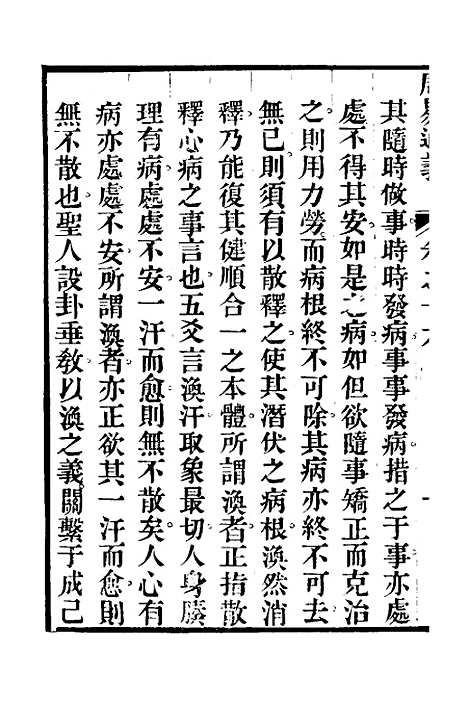 其隨時做事時時發病事事發病措之于事亦處
處不得其安如是之病如但欲隨事矯正而克治
之則用力勞而病根終不可除其病亦終不可去
無已則須有以散釋之使其潛伏之病根渙然消
釋乃能復其健順合一之本體所謂渙者正指散
釋心病之事言也五爻言渙汗取象最切人身膓
理有病處處不安一汗而愈則無不散矣人心有
病亦處處不安所謂渙者亦正欲其一汗而愈則
無不散也聖人設卦垂敎以渙之義關繫于成己